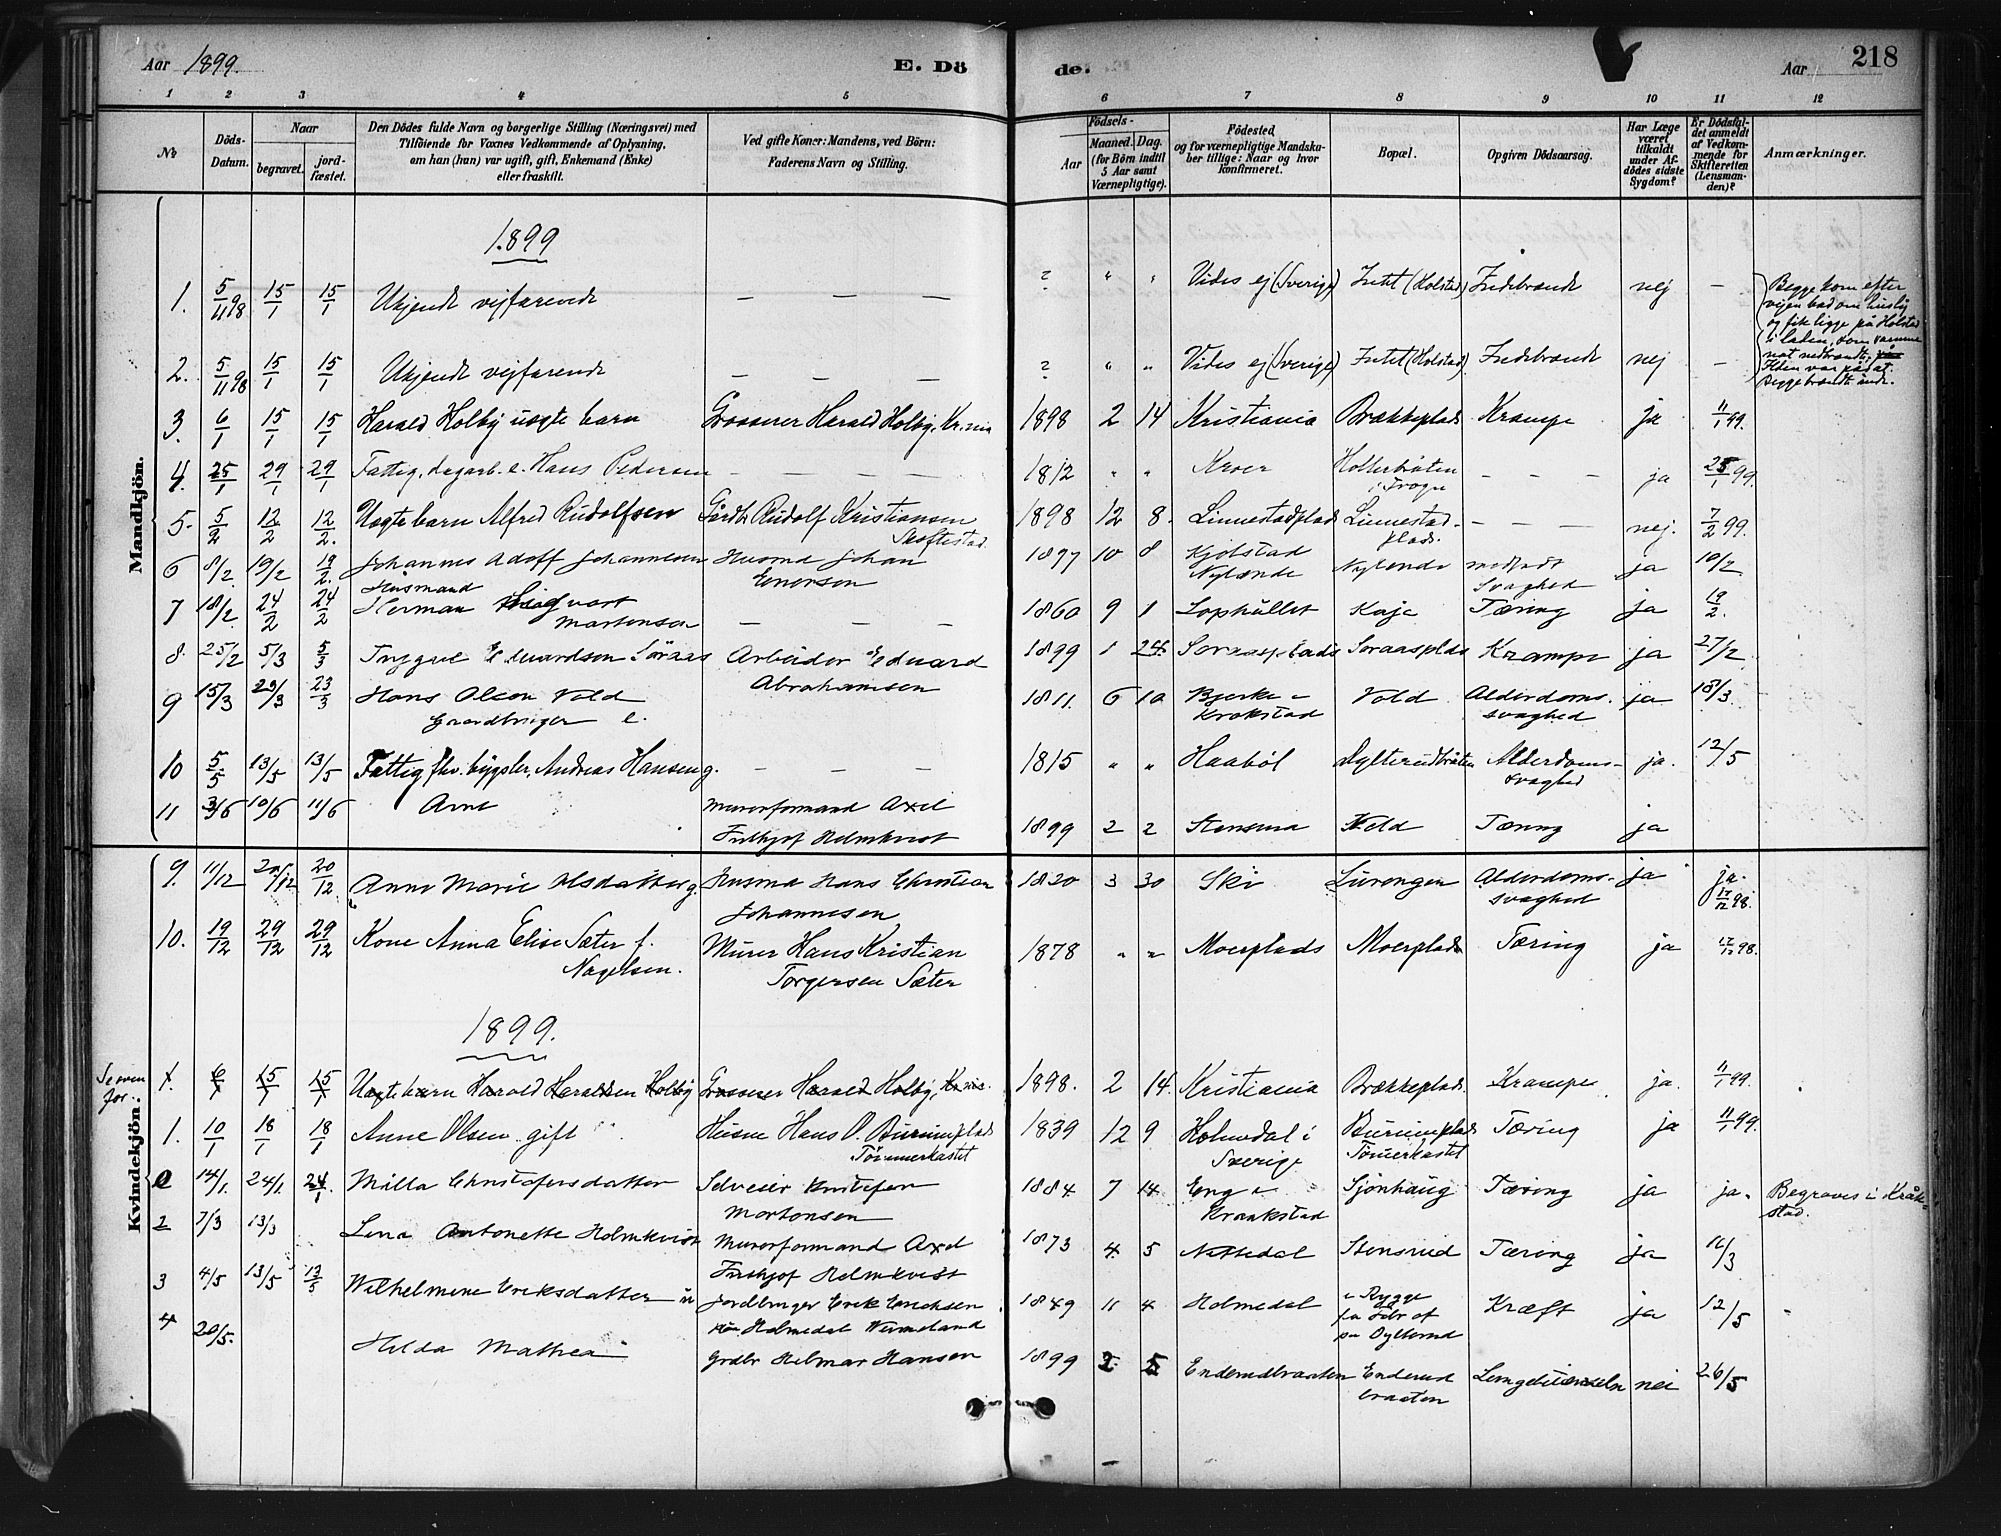 Aar 1899.
E. Dö
de.
Aar
218
1 2 3 4 5 6 7 8 9 10 11 12
No
Döds-Datum.
Naar
begravet.
jord-fæstet.
Den Dödes fulde Navn og borgerlige Stilling (Næringsvei) med
Tilföiende for Voxnes Vedkommende af Oplysning,
om han (hun) var ugift, gift, Enkemand (Enke)
eller fraskilt.
Ved gifte Koner: Mandens, ved Börn:
Faderens Navn og Stilling.
Födsels-
Aar
Maaned. Dag.
(for Börn indtil
5 Aar samt
Værnepligtige).
Födested,
og for værnepligtige Mandska-
ber tillige: Naar og hvor
konfirmeret.
Bopæl.
Opgiven Dödsaarsag.
Har Læge
været
tilkaldt
under Af-
dödes sidste
Sygdom?
Er Dödsfal-
det anmeldt
af Vedkom-
mende for
Skifteretten
(Lensman-
den)?
Anmærkninger.
Mandkjön.
1899
1. 5/11 98 15/1 15/1 Ukjendt vejfarende — — — ? " " Vides ej (Sverige) Intet (Holstad) Indebrændt nej —
Begge kom efter
vejen bad om husly
og fik ligge på Holstad
i laden, som samme
nat nedbrændte.
Ilden var påsat
Begge brændte inde.
2. 5/11 98 15/1 15/1 Ukjendt vejfarende — — — ? " " Vides ej (Sverige) Intet (Holstad) Indebrændt nej —
3. 6/1 15/1 15/1 Harald Holby uægte barn Grosserer Harald Holby, Kr.nia 1898 2 14 Kristiania Brækkeplads Krampe ja 11/1 99.
4. 25/1 29/1 29/1 Fattig, dagarb. e. Hans Pedersen — — — 1812 " " Kroer Holterbråten
i Frogn — — — ja 25/1 99.
5. 5/2 12/2 12/2. Uægte barn Alfred Rudolfsen Gårdbr Rudolf Kristiansen
Skoftestad. 1898 12 8. Linnestadplads Linnestad-
plads. — — — nej. 7/2 99.
6 8/2. 19/2 19/2. Johannes Adolf Johannesen Husmd Johan
Enersen 1897 10 8 Kjolstad
Nylænde Nylende medfødt
Svaghed ja 10/2
7 18/2 24/2 24/2 Husmand
Herman Sigvart
Martensen — — — 1860 9 1 Lophullet Kaja Tæring ja 19/2.
8. 25/2 5/3 5/3 Trygve Eduardsen Söraas Arbeider Eduard
Abrahamsen 1899 1 24. Soraasplads Soraasplds Krampe ja 27/2
9 15/3 23/3 23/3 Hans Olsen Vold
Gaardbruger e. 1811. 6 10 Bjerke i
Krokstad Vold Alderdoms-
svaghed ja 18/3
10 5/5 13/5 13/5 Fattig fhv. bygsler, Andreas Hansen g. — — — 1815 " " Haaböl Dylterudbråten Alderdoms-
svaghed ja. 12/5
11 3/6 10/6 11/6 Arne Murerformand Axel
Frithjof Holmkvist 1899 2 2 Stensrud Tæring ja
Kvindekjön.
9. 11/12 20/12 20/12 Anne Marie Olsdatter g. Husmd Hans Christian
Johannesen 1820 3 30 Ski Lurengen Alderdoms-
svaghed ja ja.
17/12 98.
10. 19/12 29/12 29/12 Kone Anna Elise Sæter f.
Nagelsen. Murer Hans Kristian
Torgersen Sæter 1878 " " Moerplads Moerplads Tæring ja 17/12 98.
1899.
Se oven
for.
1. 6/1 15/1 15/1 Uægte barn Harald Haraldsen Holby Grosserer Harald Holby, Kr.nia. 1898. 2 14. Kristiania Brækkeplads. Krampe. ja. 11/1 99.
1. 10/1 18/1 18/1 Anne Olsen gift Husm Hans O. Burumplads
Tömmerkastet 1839 12 9 Holmedal i
Sverige Burumplads
Tömerkastet Tæring ja 11/1 99.
14/1. 24/1. 24/1. Milla Christofersdatter Selveier Kristofer
Mortensen 1884 7 14 Eng i
Kraakstad Sjönhaug Tæring ja ja. Begraves i Kråk-
stad.
2 7/3 13/3 Lena Antonette Holmkvist Murerformand Axel
Frithjof Holmkvist 1873 4. 5 Nittedal Stensrud Tæring ja 11/3
3 4/5 13/5 13/5 Wilhelmine Eriksdatter u Jordbruger Erik Erichsen
Holmedal Vermeland 1849 11 4 Holmedal i Rygge
paa Dylterud Kræft ja 12/5
4 20/5. Hilda Mathea Grdbr Helmar Hansen 1899 2. 5 Enderudbraaten Enderud
braaten nei 26/5